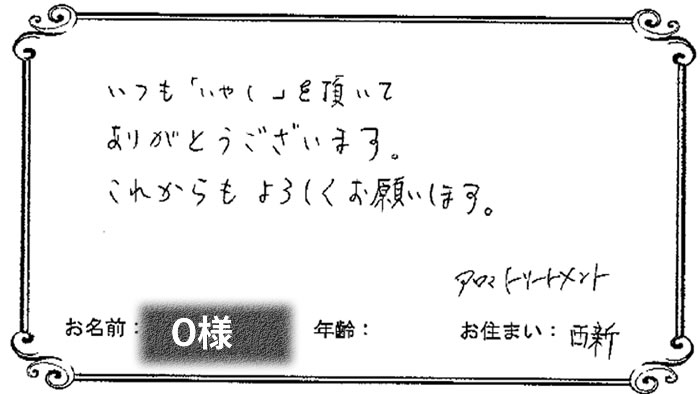 いつも「いやし」を頂いて
ありがとうございます。
これからもよろしくお願いします。
アロマトリートメント
お名前： O様 年齢： お住まい： 西新